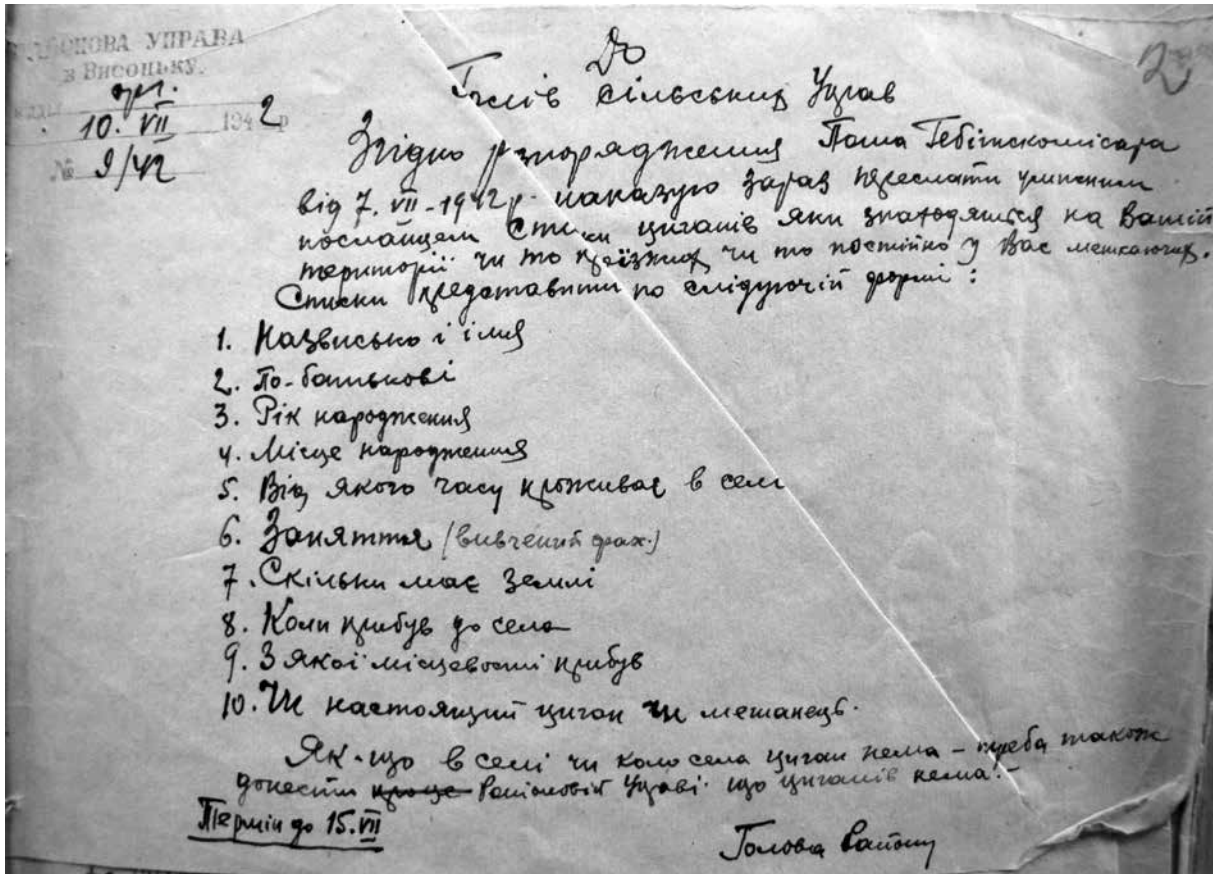 УПРАВА
в Висоцьку.
10. VII 1942 р
№ 9/42
2
До
Голів Сільських Управ
Згідно розпорядження Пана Гебітскомісара
від 7. VII - 1942 р. наказую зараз переслати умисним
посланцем Списки циганів яки знаходяться на Вашій
території чи то проїзжих чи то постійно у Вас мешкаючих.
Списки представити по слідуючій формі :
1. Назвисько і імя
2. По-батькові
3. Рік народження
4. Місце народження
5. Від якого часу проживає в селі
6. Заняття (вивчений фах.)
7. Скільки має землі
8. Коли прибув до села
9. З якої місцевости прибув
10. Чи настоящий циган чи мешанець.
Як-що в селі чи коло села циган нема – треба також
донести проце Районовій Управі що циганів нема.-
Термін до 15. VII
Голова Району